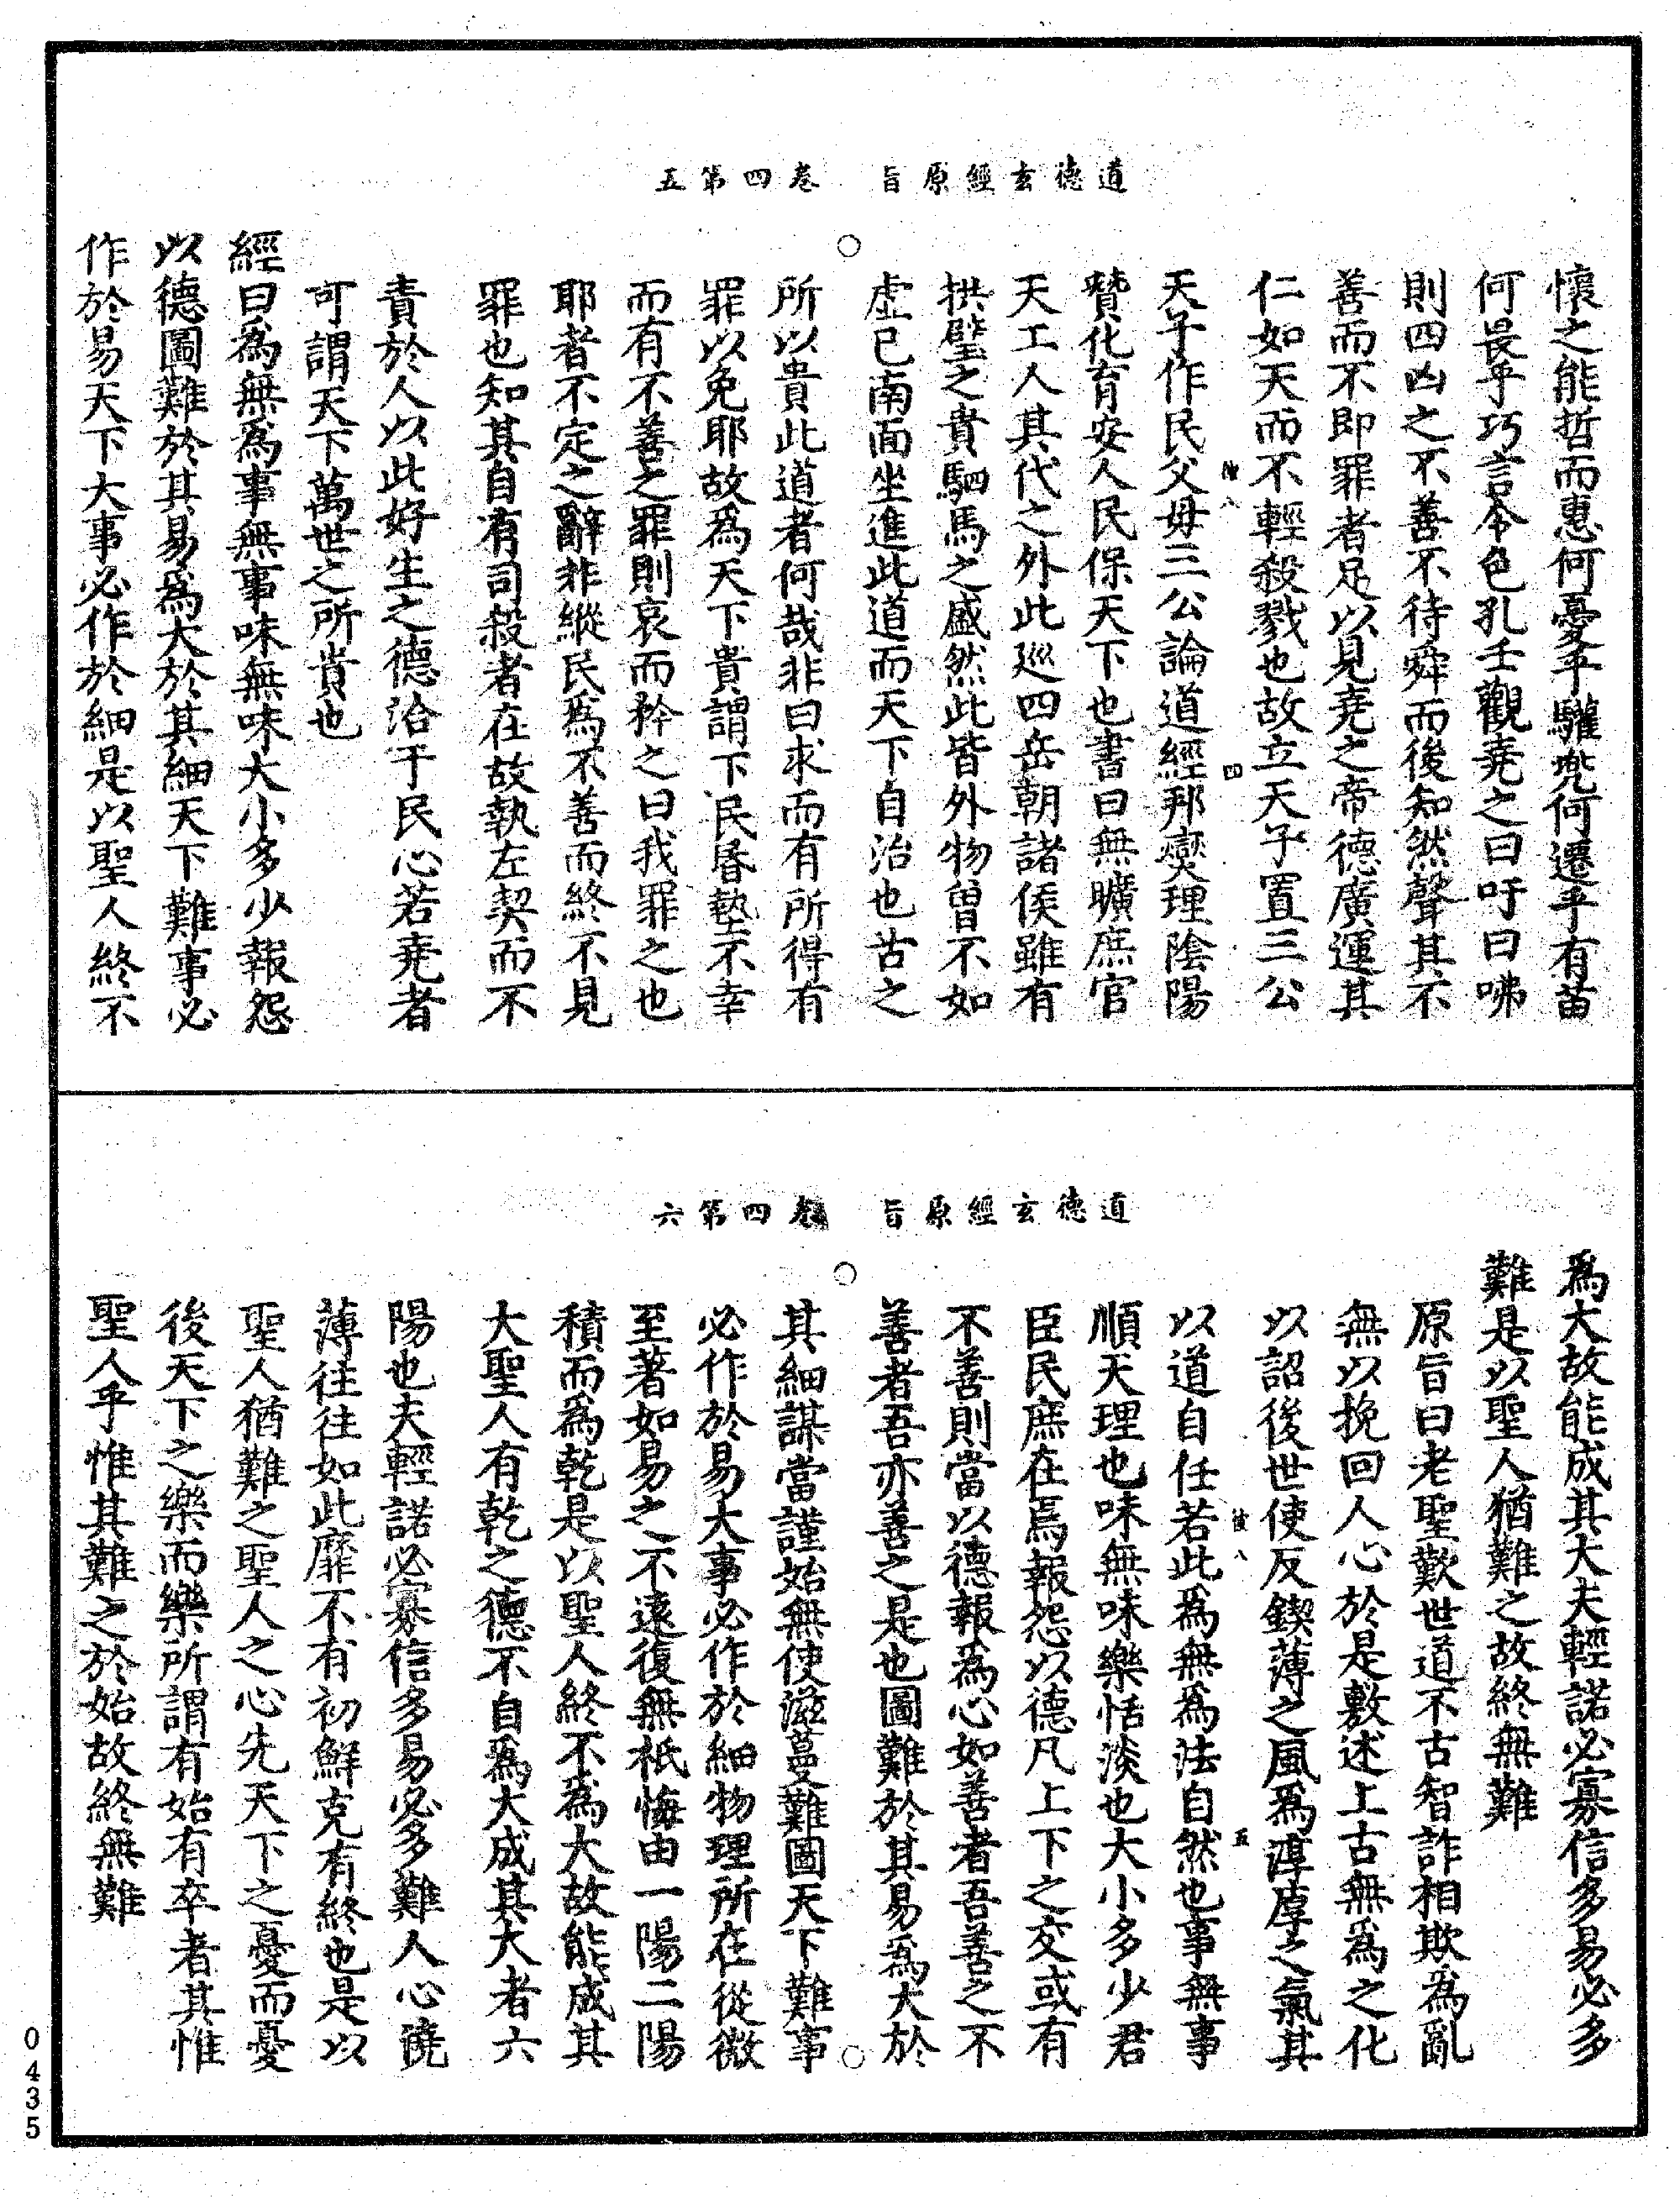 道德玄經原旨　卷四第五
懷之能哲而惠何憂乎驩兜何遷乎有苗
何畏乎巧言令色孔壬觀堯之曰吁曰咈
則四凶之不善不待舜而後知然聲其不
善而不即罪者足以見堯之帝德廣運其
仁如天而不輕殺戮也故立天子置三公
天子作民父母三公論道經邦燮理陰陽
贊化育安人民保天下也書曰無曠庶官
天工人其代之外此巡四岳朝諸侯雖有
拱璧之貴駟馬之盛然此皆外物曾不如
虛已南面坐進此道而天下自治也古之
所以貴此道者何哉非曰求而有所得有
罪以免耶故為天下貴謂下民昏墊不幸
而有不善之罪則哀而矜之曰我罪之也
耶者不定之辭非縱民為不善而終不見
罪也知其自有司殺者在故執左契而不
責於人以此好生之德洽于民心若堯者
可謂天下萬世之所貴也
經曰為無為事無事味無味大小多少報怨
以德圖難於其易為大於其細天下難事必
作於易天下大事必作於細是以聖人終不
道德玄經原旨　卷四第六
為大故能成其大夫輕諾必寡信多易必多
難是以聖人猶難之故終無難
原旨曰老聖歎世道不古智詐相欺為亂
無以挽回人心於是敷述上古無為之化
以詔後世使反鍥薄之風為淳厚之氣其
以道自任若此為無為法自然也事無事
順天理也味無味樂恬淡也大小多少君
臣民庶在焉報怨以德凡上下之交或有
不善則當以德報為心如善者吾善之不
善者吾亦善之是也圖難於其易為大於
其細謀當謹始無使滋蔓難圖天下難事
必作於易大事必作於細物理所在從微
至著如易之不遠復無祇悔由一陽二陽
積而為乾是以聖人終不為大故能成其
大聖人有乾之德不自為大成其大者六
陽也夫輕諾必寡信多易必多難人心澆
薄往往如此靡不有初鮮克有終也是以
聖人猶難之聖人之心先天下之憂而憂
後天下之樂而樂所謂有始有卒者其惟
聖人乎惟其難之於始故終無難
0435